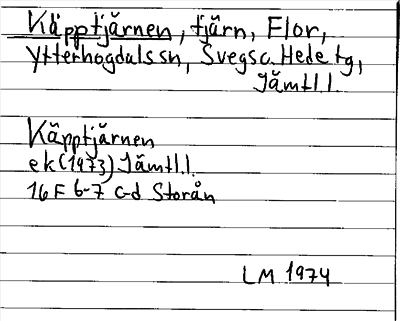 Käpptjärnen, tjärn, Flor,
Ytterhogdals sn, Svegs o. Hede tg,
Jämtl.l.
Käpptjärnen
ek (1973) Jämtl.l.
16 F 6-7 c-d Storån
LM 1974